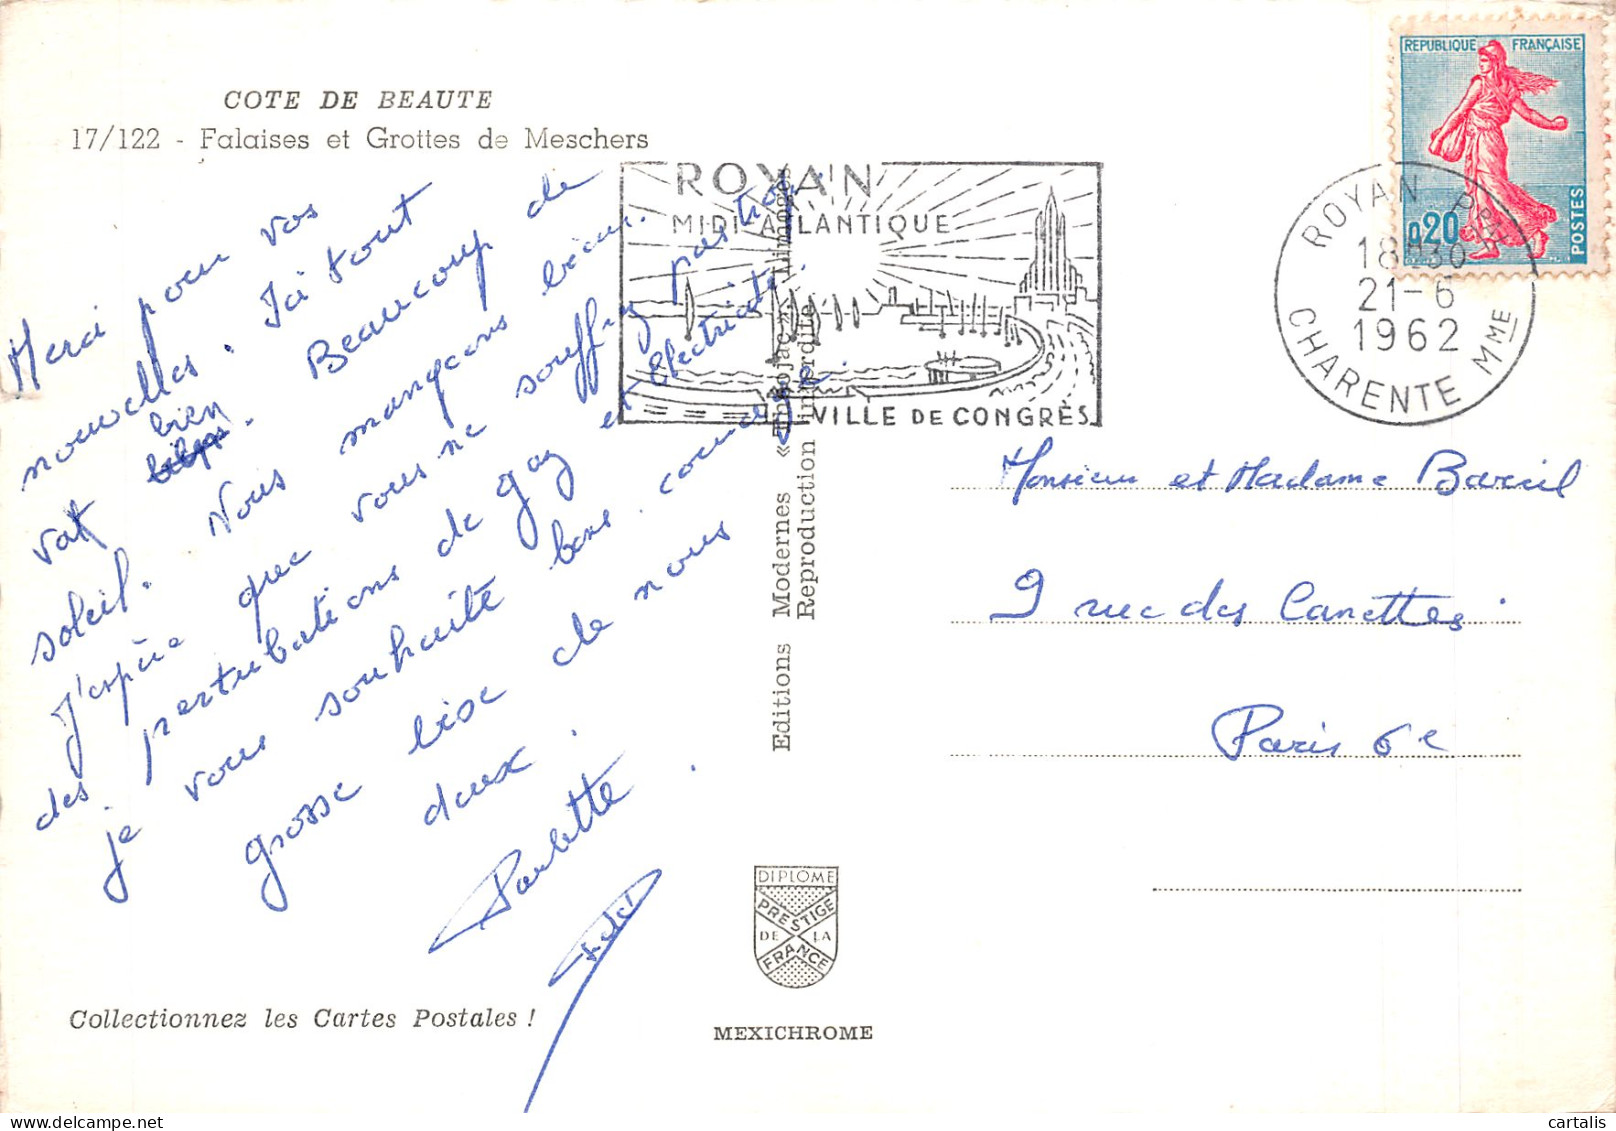 COTE DE BEAUTE
17/122 - Falaises et Grottes de Meschers
Merci pour vos
nouvelles. Ici tout
vat bien. Beaucoup de
soleil. Nous mangeons bien.
J'espère que vous ne souffrez pas trop
des perturbations de gaz et électricité.
je vous souhaite bon courage.
grosse bise de nous
deux.
Paulette
Collectionnez les Cartes Postales !
Editions Modernes « Théojac » Limoges
Reproduction interdite
DIPLOME
PRESTIGE
DE LA
FRANCE
MEXICHROME
ROYAN
MIDI ATLANTIQUE
VILLE DE CONGRÈS
ROYAN PPAL
18H30
21-6
1962
CHARENTE MME
REPUBLIQUE FRANÇAISE
0,20
POSTES
Monsieur et Madame Bareil
9 rue des Canettes
Paris 6e
© cartalis